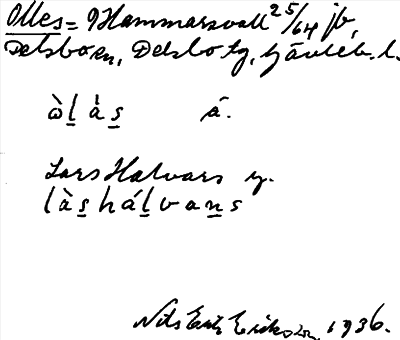 Olles = Hammarsvall 25/64 jb,
Delsboen, Delsbo tg, Gävleb. l.
òl̲às̲ á.
Lars Halvars y.
làs̲hál̲van̲s
Nils Erik Erikson 1936.